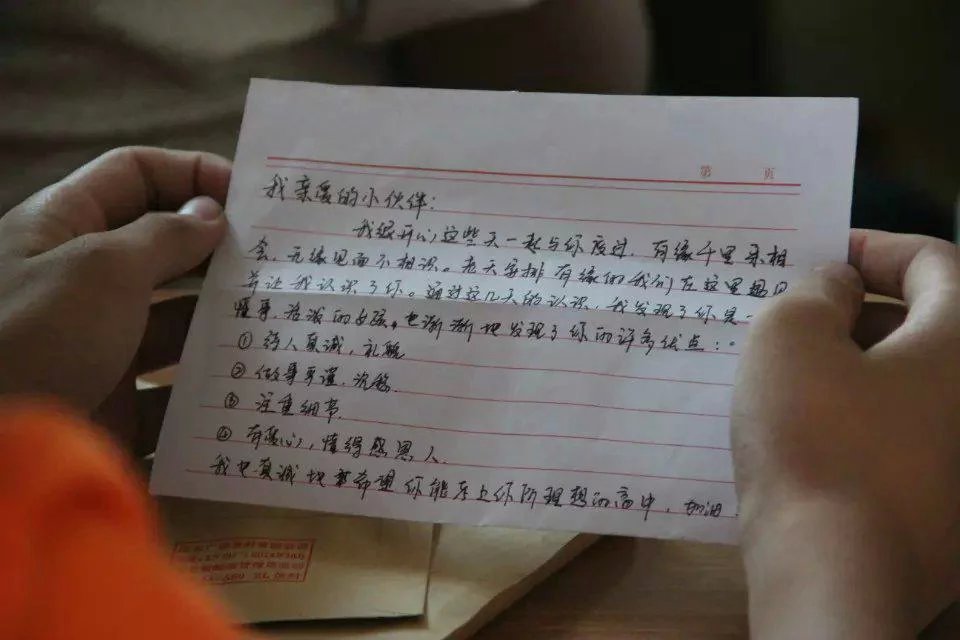 第 页
我亲爱的小伙伴：
我很开心这些天一起与你度过，有缘千里来相
会，无缘见面不相识。老天安排有缘的我们在这里遇见
并让我认识了你。通过这几天的认识，我发现了你是一
懂事，活泼的女孩。也渐渐地发现了你的许多优点：
①待人真诚，礼貌
②做事严谨，沉稳
③注重细节
④有爱心，懂得感恩人
我也真诚地希望你能考上你所理想的高中，加油